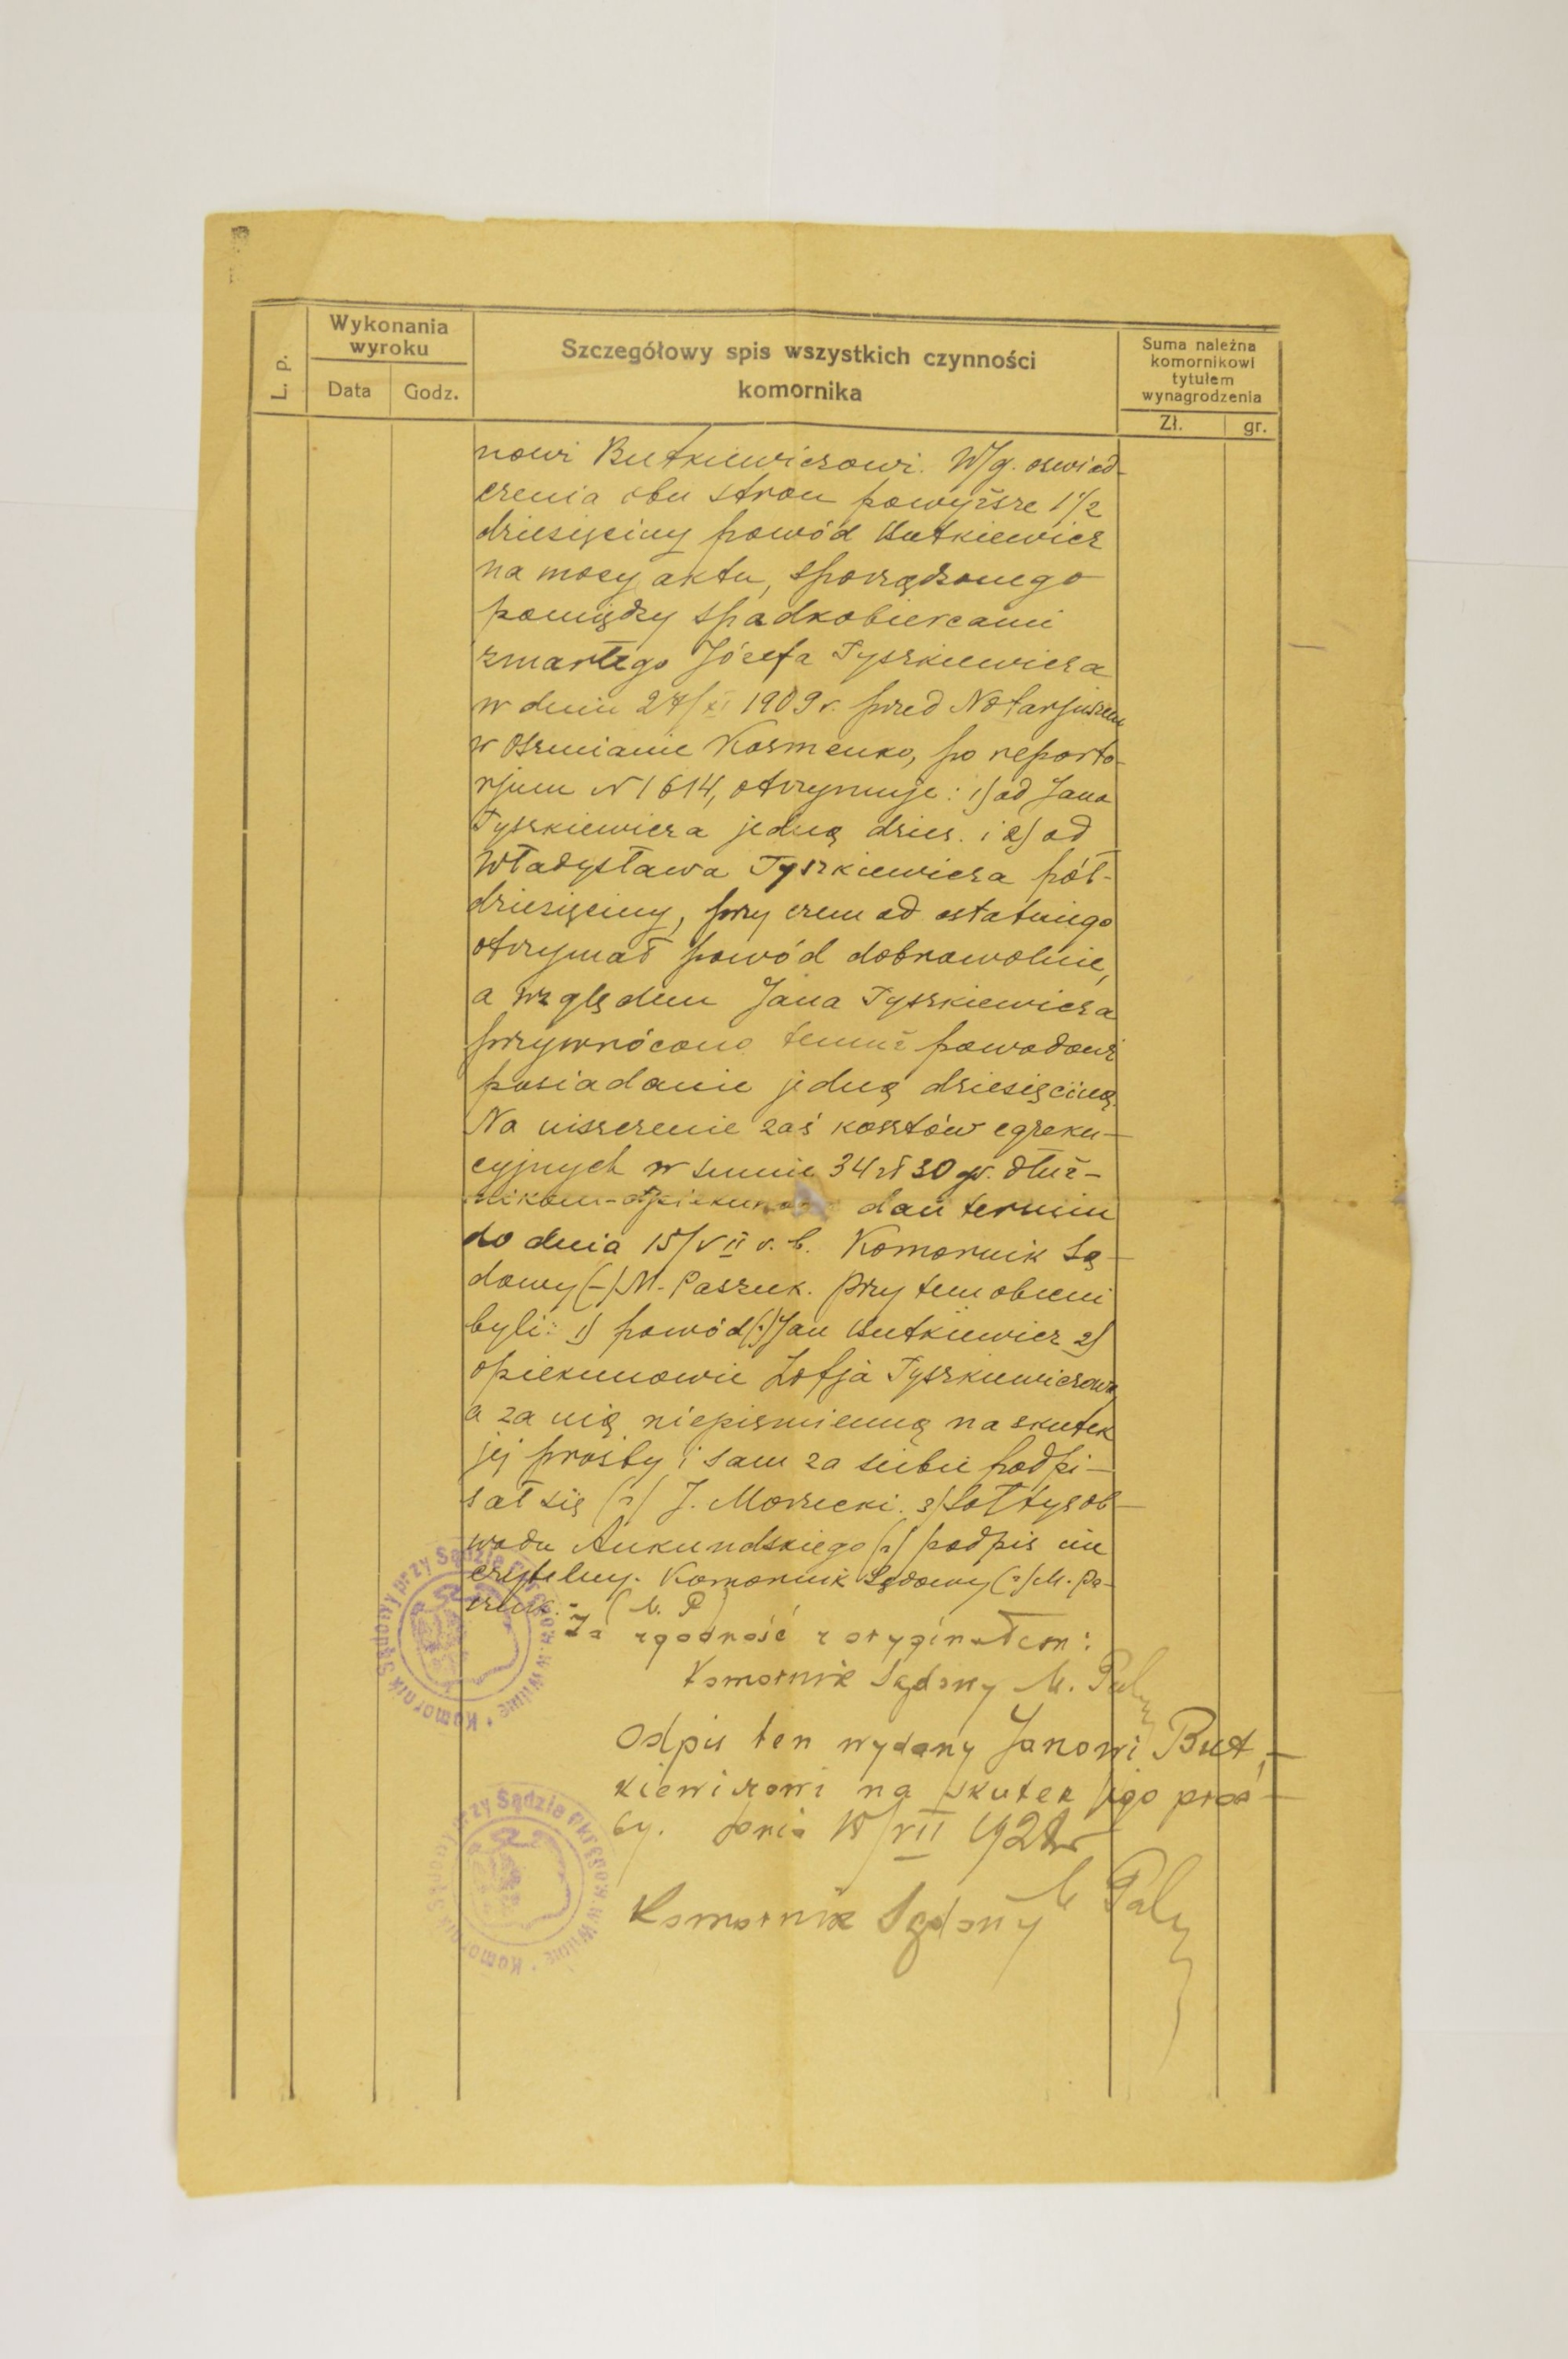 L. p.
Wykonania
wyroku
Data
Godz.
Szczegółowy spis wszystkich czynności
komornika
Suma należna
komornikowi
tytułem
wynagrodzenia
Zł.
gr.
nowi Butkiewiczowi. W/g. oswiad-
czenia obu stron powyższe 1 1/2
dziesięciny powód Butkiewicz
na mocy aktu, sporządzonego
pomiędzy spadkobiercami
zmarłego Józefa Tyszkiewicza
w dniu 1909 r. przed Notarjuszem
w Oszmianie Kosmenko, po reperto-
rjum N 1614, otrzymuje: 1) od Jana
Tyszkiewicza jedną dzies. i 2) od
Władysława Tyszkiewicza pół-
dziesięciny, przy czem od ostatniego
otrzymał powód dobrowolnie,
a względem Jana Tyszkiewicza
przywrócono temuż powodowi
posiadanie jedną dziesięciną.
Na uiszczenie zaś kosztów egzeku-
cyjnych w sumie 34 zł 30 gr. dłuż-
nikom- dan termin
do dnia 15/VII r. b. Komornik Są-
dowy (-) M. Paszuk. Przytem obecni
byli: 1) powód (-) Jan Butkiewicz 2)
opiekunowie Zofja Tyszkiewiczowa
a za nią niepiśmienną na skutek
jej prośby i sam za siebie podpi-
sał się (-) J. Morzecki. 3) Sołtys ob-
wodu (-) podpis nie
czytelny. Komornik Sądowy (-) M. Pa-
szuk. - (M. P.)
Za zgodność z oryginałem:
Komornik Sądowy M.
Odpis ten wydany Janowi But-
kiewiczowi na skutek jego proś-
by. dnia 15/VII
Komornik Sądowy M
Komornik Sądowy przy Sądzie Okręgow. w Wilnie
Komornik Sądowy przy Sądzie Okręgow. w Wilnie